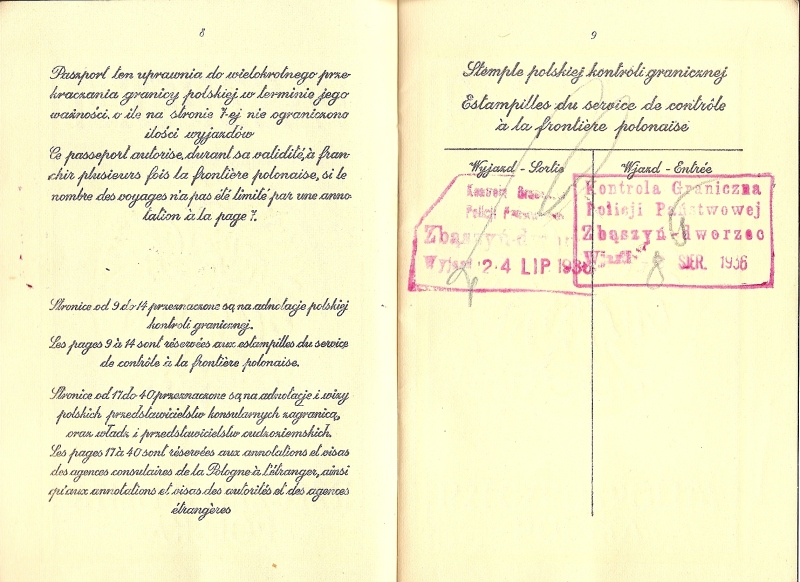 8
Paszport ten uprawnia do wielokrotnego prze-
kraczania granicy polskiej w terminie jego
ważności, o ile na stronie 7-ej nie ograniczono
ilości wyjazdów
Ce passeport autorise, durant sa validité, à fran-
chir plusieurs fois la frontière polonaise, si le
nombre des voyages n'a pas été limité par une anno-
tation à la page 7.
Stronice od 9 do 14 przeznaczone są na adnotacje polskiej
kontroli granicznej.
Les pages 9 à 14 sont réservées aux estampilles du service
de contrôle à la frontière polonaise.
Stronice od 17 do 40 przeznaczone są na adnotacje i wizy
polskich przedstawicielstw konsularnych zagranicą,
oraz władz i przedstawicielstw cudzoziemskich.
Les pages 17 à 40 sont réservées aux annotations et visas
des agences consulaires de la Pologne à l'étranger, ainsi
qu'aux annotations et visas des autorités et des agences
étrangères
9
Stemple polskiej kontroli granicznej
Estampilles du service de contrôle
à la frontière polonaise
Wyjazd - Sortie
Wjazd - Entrée
Kontrola
Policji
Zbąszyń
Wyjazd 24 LIP 1936
Kontrola Graniczna
Policji Państwowej
Zbąszyń-dworzec
Wjazd 8 SIER. 1936